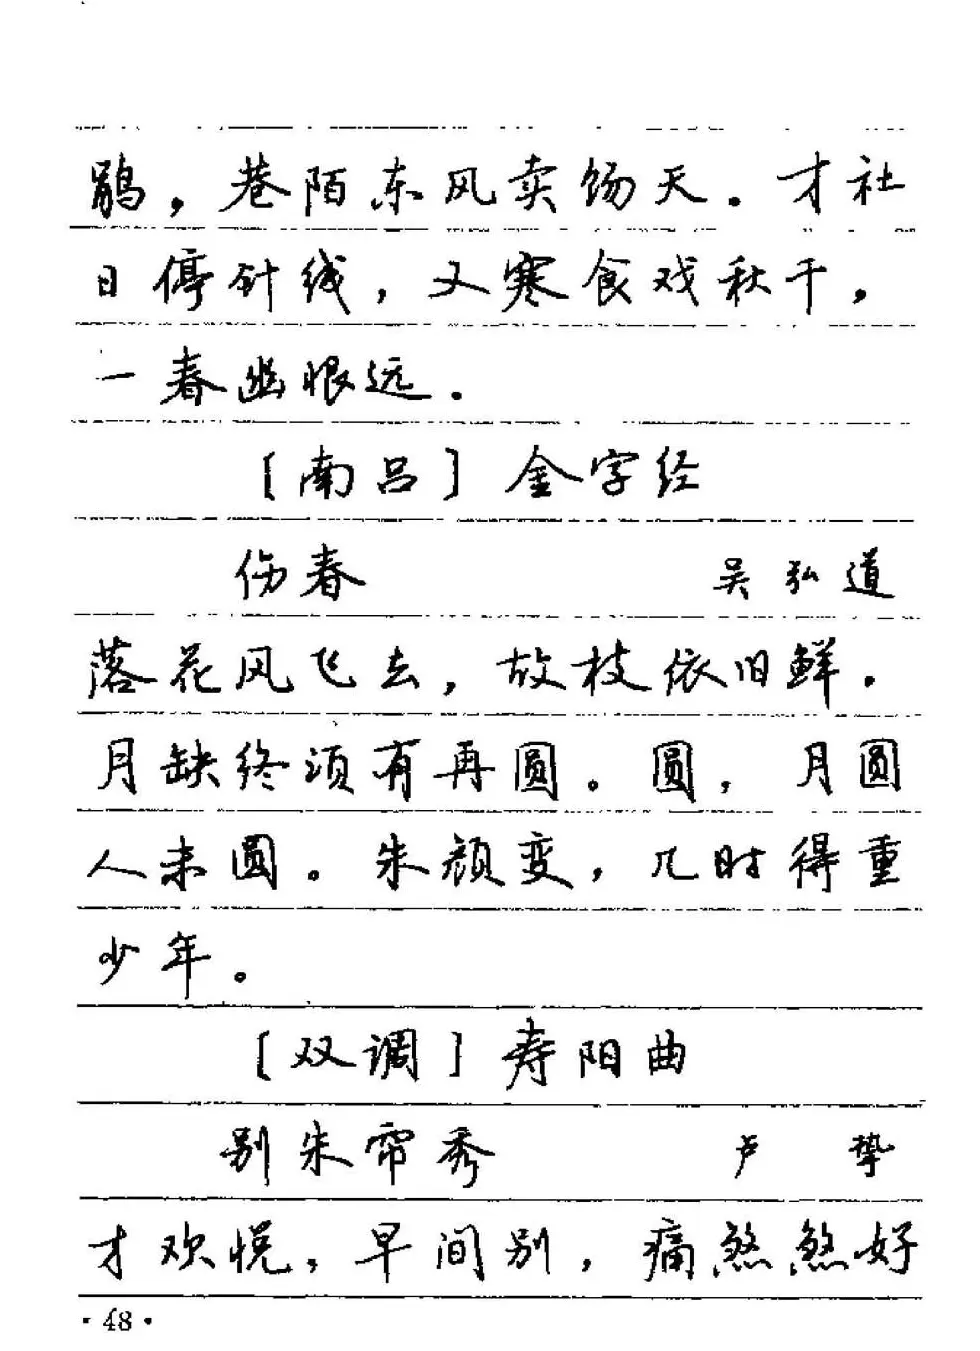 鹃，巷陌东风卖饧天。才社
日停针线，又寒食戏秋千，
一春幽恨远。
［南吕］金字经
伤春 吴弘道
落花风飞去，故枝依旧鲜。
月缺终须有再圆。圆，月圆
人未圆。朱颜变，几时得重
少年。
［双调］寿阳曲
别朱帘秀 卢 挚
才欢悦，早间别，痛煞煞好
·48·